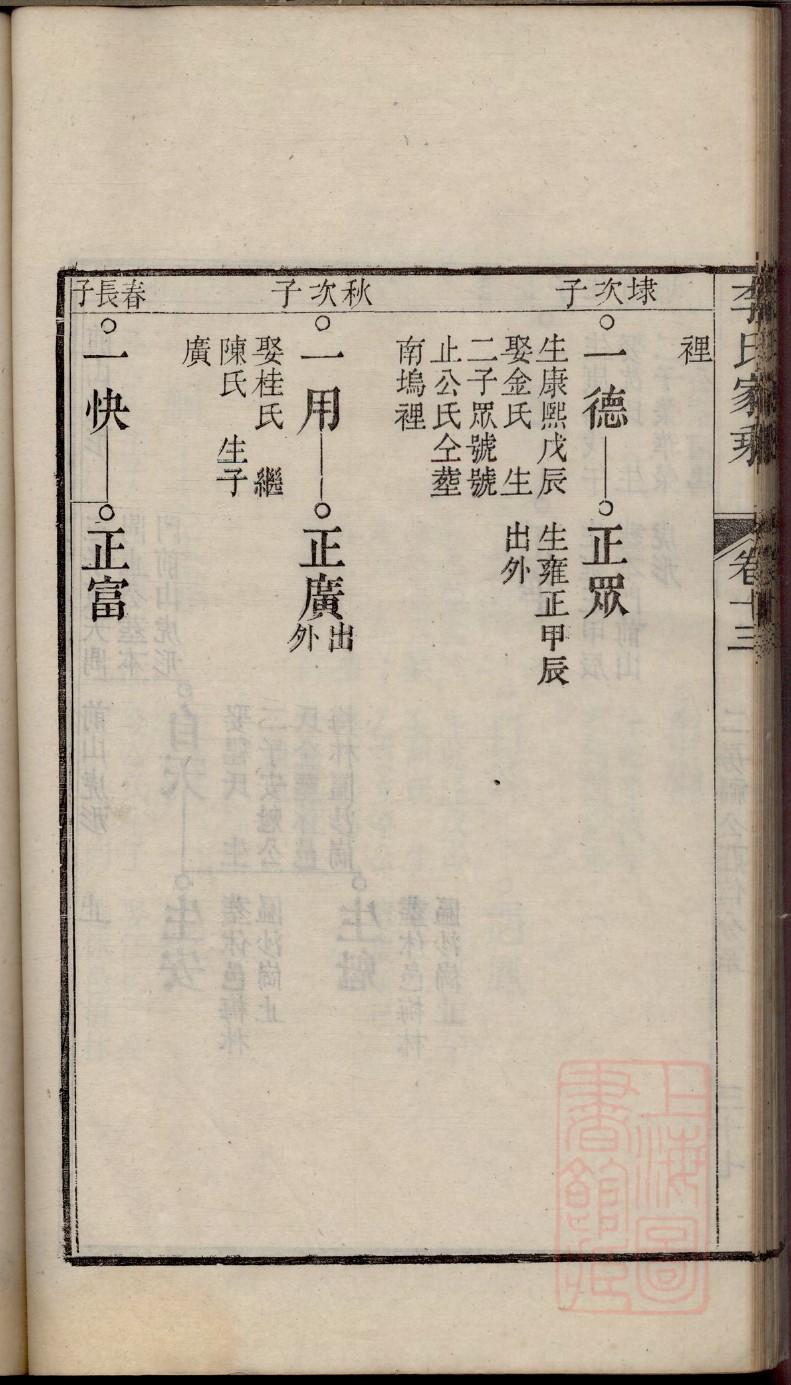 李氏家乘 卷十三
裡
埭次子
一德
生康熙戊辰
娶金氏 生
二子眾號號
止公氏仝塟
南塢裡
正眾
生雍正甲辰
出外
秋次子
一用
娶桂氏 繼
陳氏 生子
廣
正廣
出
外
春長子
一快
正富
上海圖書館藏